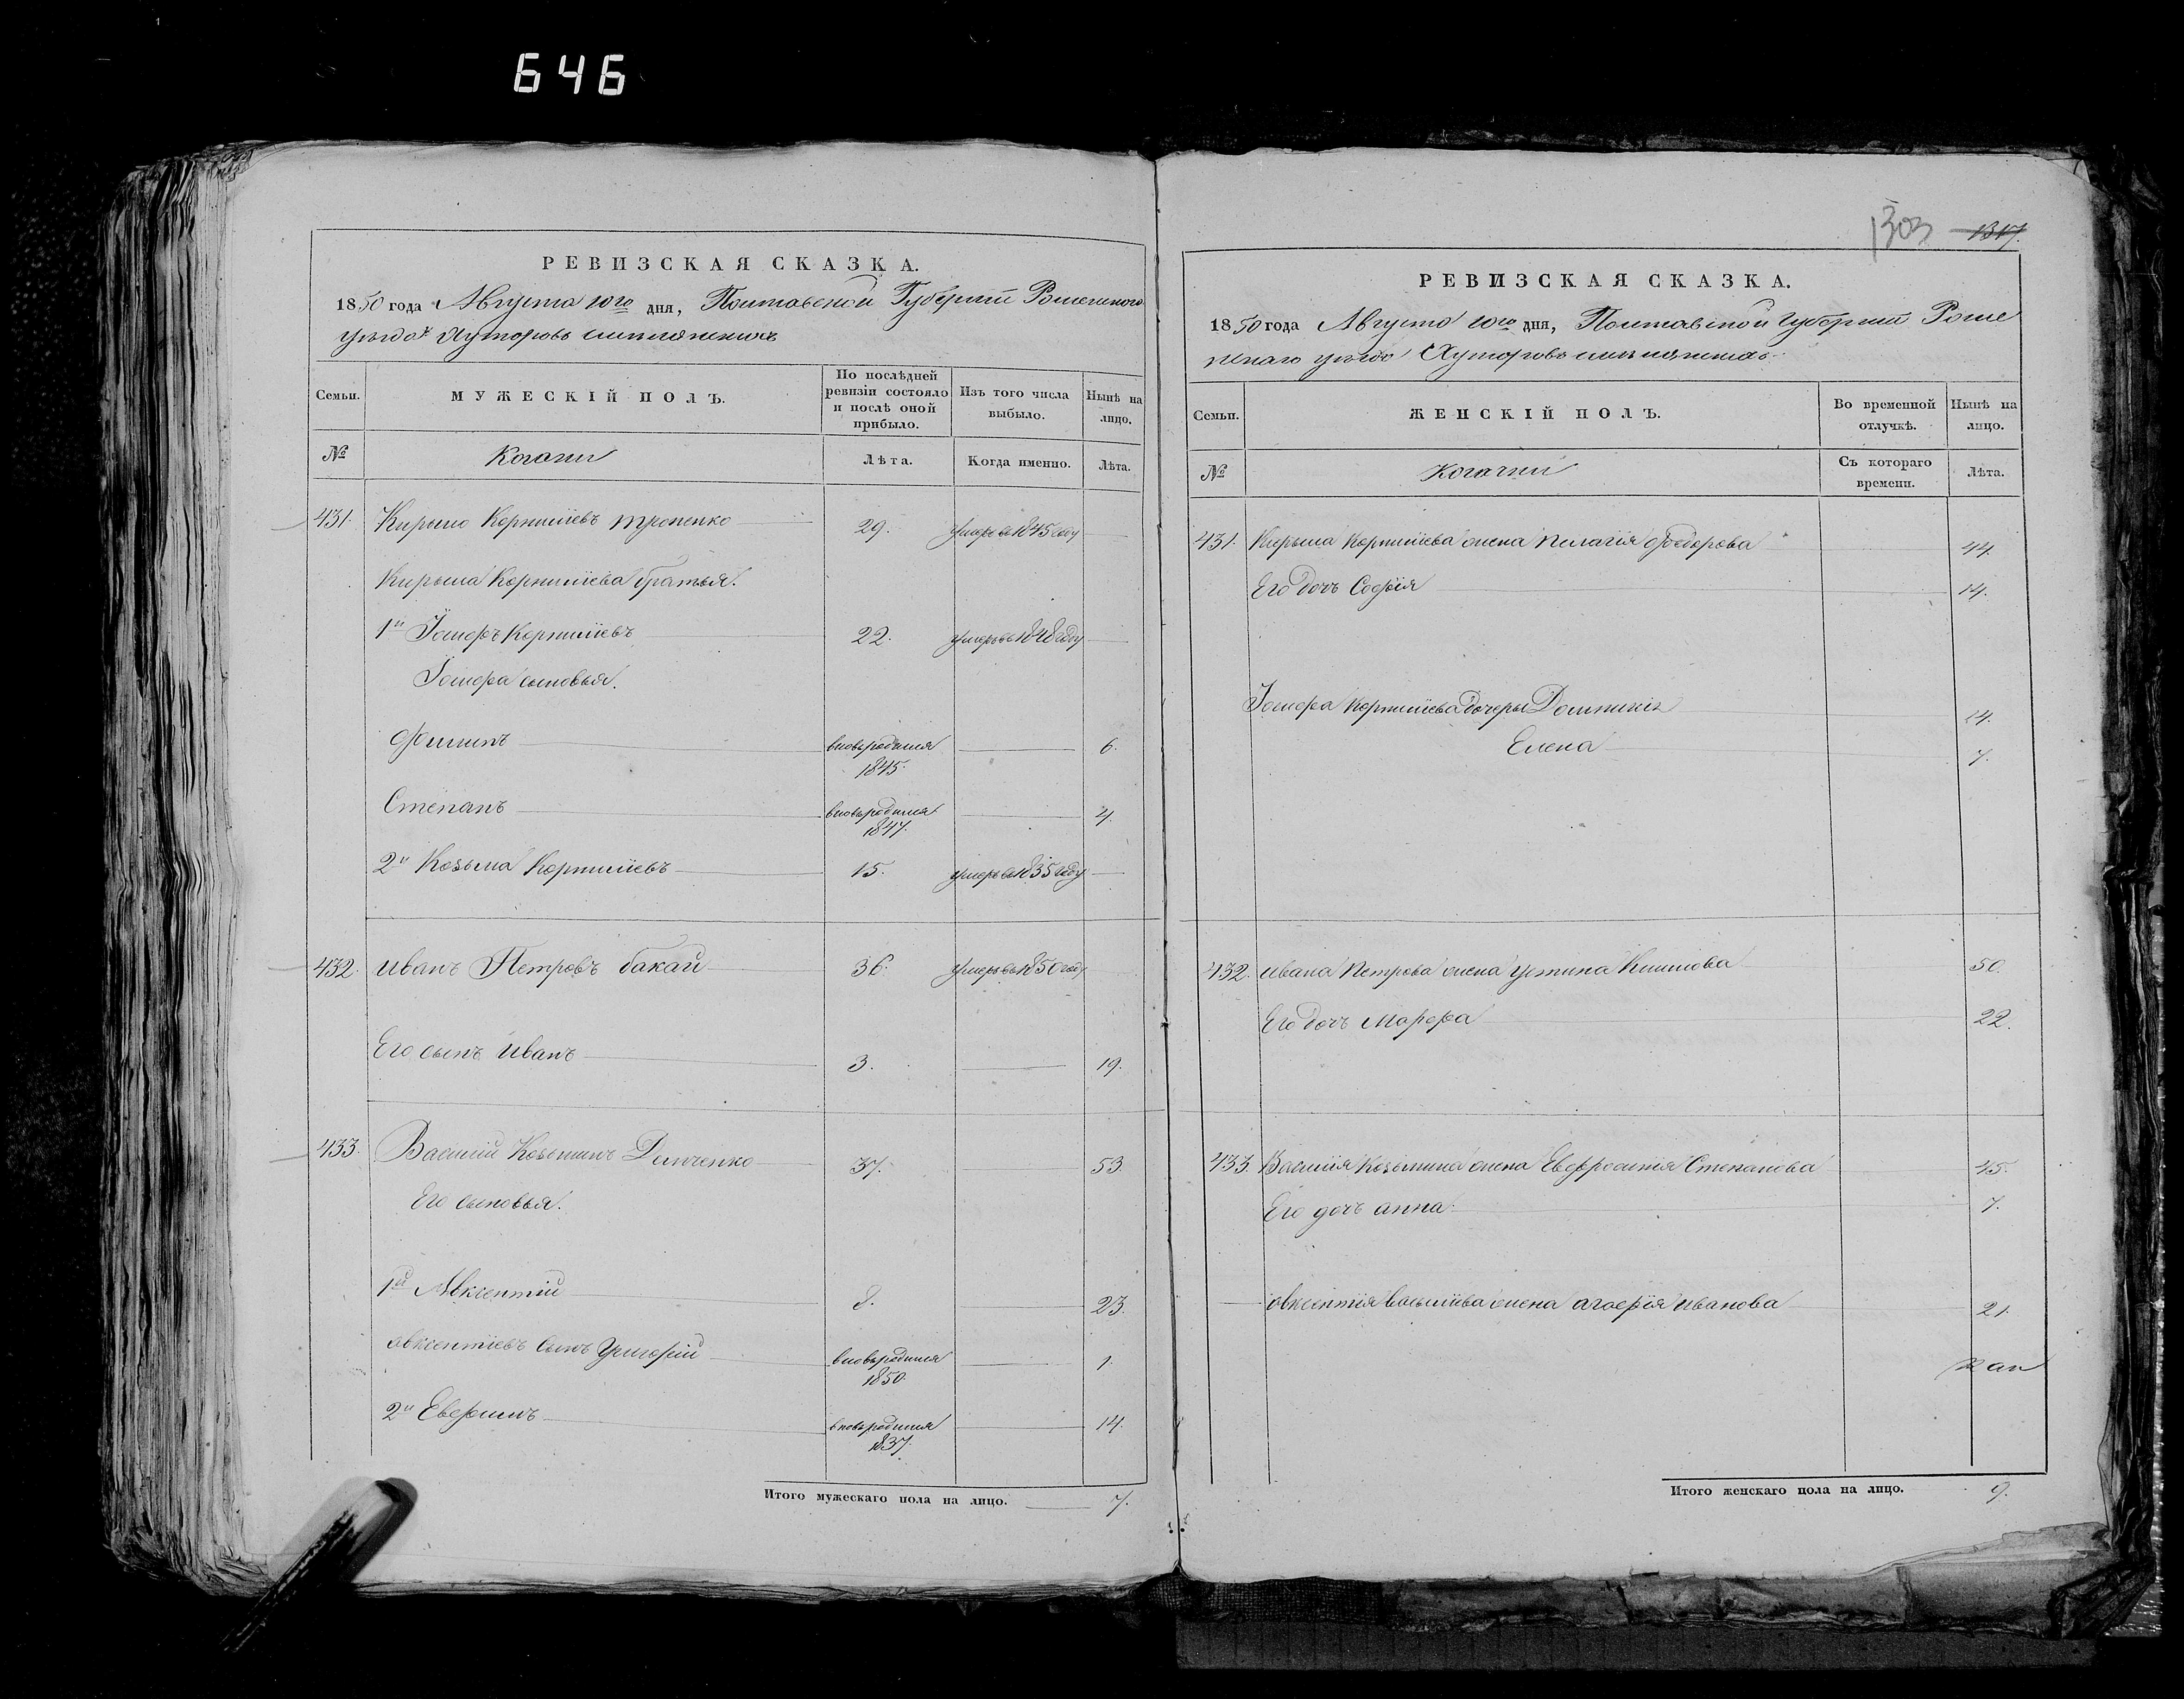 646
РЕВИЗСКАЯ СКАЗКА.
1850 года Августа 10го дня, Полтавской Губерніи Роменскаго
уѣзда Хуторовъ
Семьи.
МУЖЕСКІЙ ПОЛЪ.
По послѣдней ревизіи состояло и послѣ оной прибыло.
Изъ того числа выбыло.
Нынѣ на лицо.
№
Козаки
Лѣта.
Когда именно.
Лѣта.
431. Кирыло Корнилiевъ 29. умеръ въ 1845 году
Кирыла Корнилiева братья.
1й Iосифъ Корнилiевъ 22. умеръ въ 1848 году
Iосифа сыновья.
Филипъ вновьродился 1845. 6.
Степанъ вновьродился 1847. 4.
2й Козьма Корнилiевъ 15. умеръ въ 1835 году
432. Иванъ Петровъ бакай 36. умеръ въ 1850 году
Его сынъ Иванъ 3. 19.
433. Василій Козьминъ Демченко 37. 53.
Его сыновья.
1й Авксентій 8. 23.
авксентіевъ сынъ Григорій вновьродился 1850. 1.
2й Евфимъ вновьродился 1837. 14.
Итого мужескаго пола на лицо. 7.
1303 1317.
РЕВИЗСКАЯ СКАЗКА.
1850 года Августа 10го дня, Полтавской Губерніи Роме
нскаго уѣзда Хуторовъ
Семьи.
ЖЕНСКІЙ ПОЛЪ.
Во временной отлучкѣ.
Нынѣ на лицо.
№
Козачки
Съ котораго времени.
Лѣта.
431. Кирыла Корнилiева жена Пелагія Федорова 44.
Его дочь Софія 14.
Iосифа Корнилiева дочери Домникія 14.
Елена 7.
432. Ивана Петрова жена Устина Климова 50.
Его дочь Марфа 22.
433. Василія Козьмина жена Евфросинія Степанова 45.
Его дочь анна. 7.
авксентія васильіева жена агафія иванова 21.
Итого женскаго пола на лицо. 9.